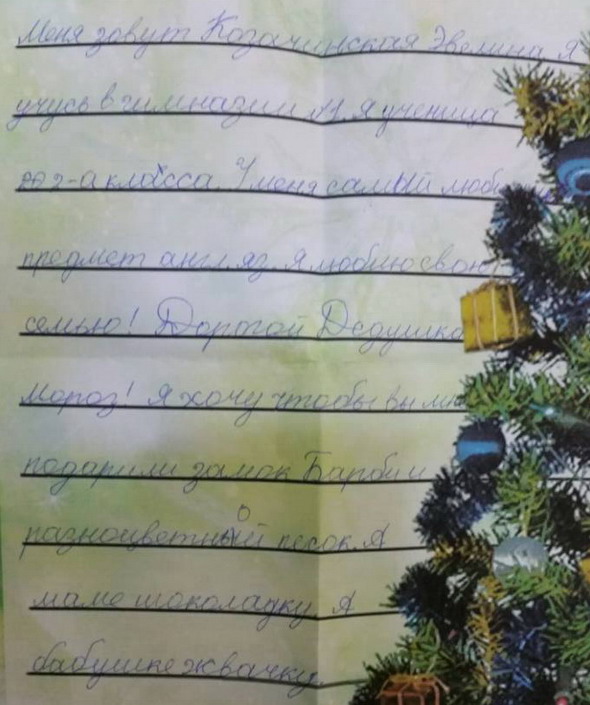 Меня зовут Козачинская Эвелина Я
учусь в гимназии №1. Я ученица
2-а класса. У меня самый люби
предмет англ. яз. Я люблю свою
семью! Дортой Дедушка
Мороз! Я хочу чтобы вы мне
подарили замок Барби и
разноцветный песок. А
маме шоколадку. А
бабушке жвачку.